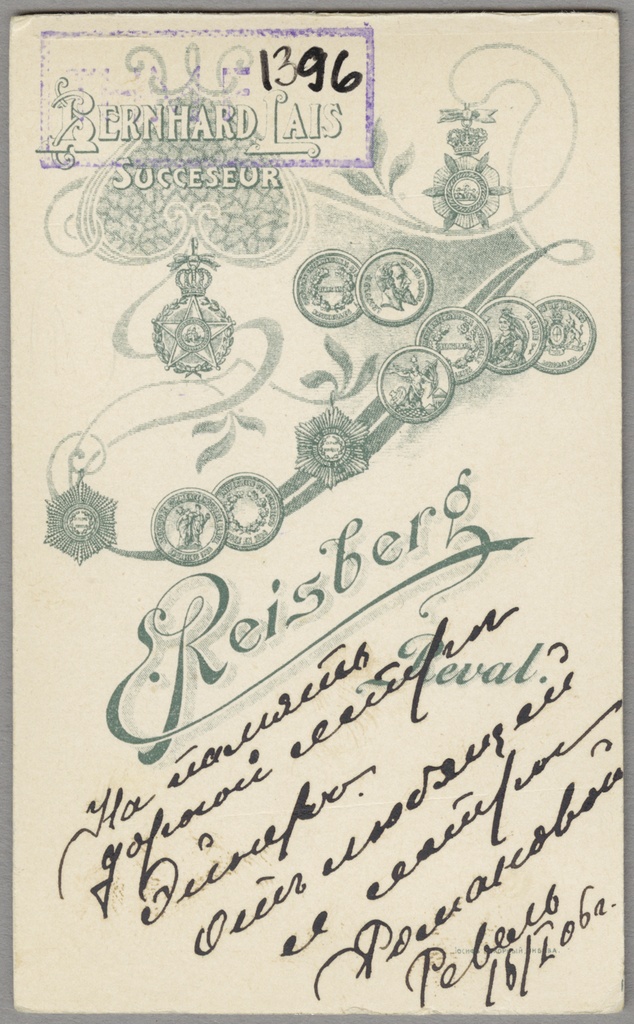 1396
BERNHARD LAIS
SUCCESEUR
E. Reisberg
Reval.
На память
дорогой сестры
Эйнеръ.
Отъ любящей
ея сестры
Романовой
Ревель
16/I 06 г.